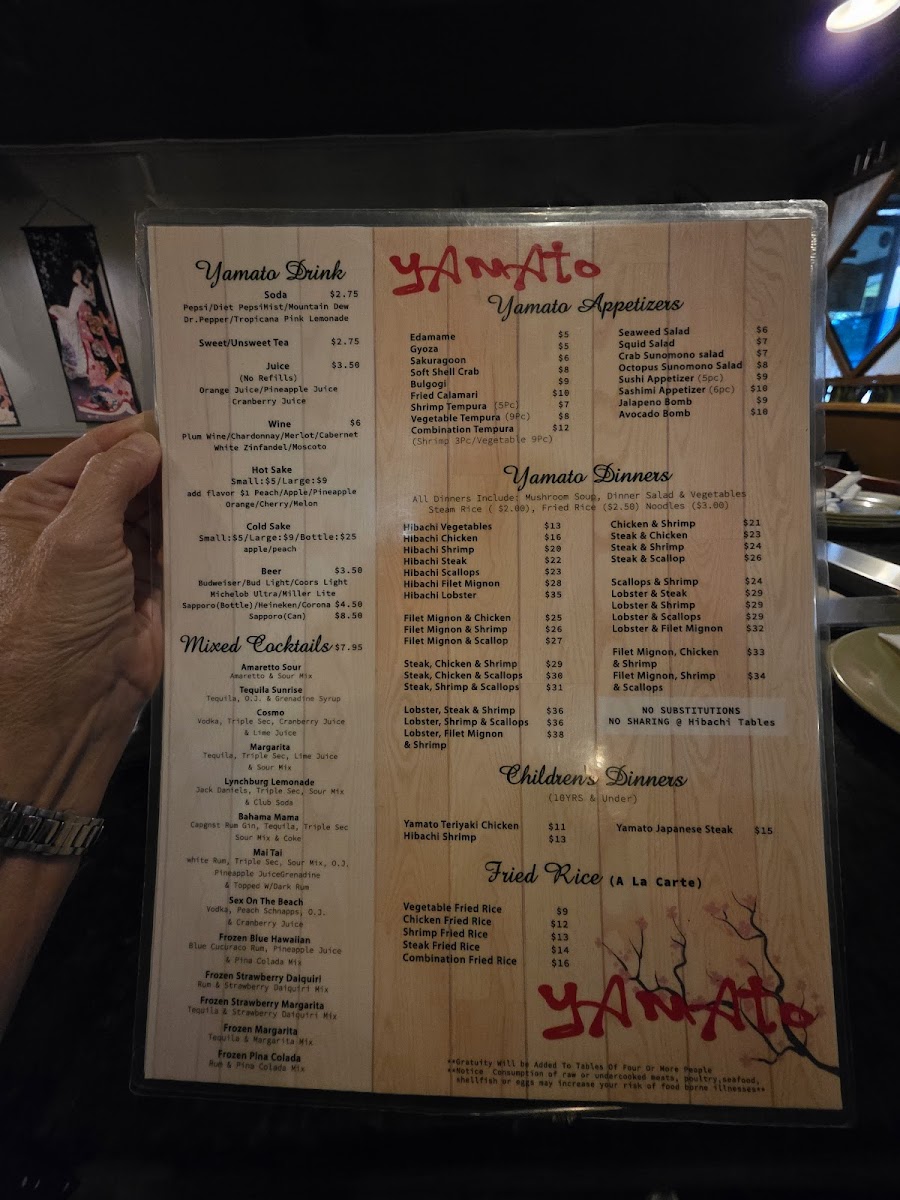 Yamato Drink
Soda $2.75
Pepsi/Diet PepsiMist/Mountain Dew
Dr.Pepper/Tropicana Pink Lemonade
Sweet/Unsweet Tea $2.75
Juice $3.50
(No Refills)
Orange Juice/Pineapple Juice
Cranberry Juice
Wine $6
Plum Wine/Chardonnay/Merlot/Cabernet
White Zinfandel/Moscato
Hot Sake
Small:$5/Large:$9
add flavor $1 Peach/Apple/Pineapple
Orange/Cherry/Melon
Cold Sake
Small:$5/Large:$9/Bottle:$25
apple/peach
Beer $3.50
Budweiser/Bud Light/Coors Light
Michelob Ultra/Miller Lite
Sapporo(Bottle)/Heineken/Corona $4.50
Sapporo(Can) $8.50
Mixed Cocktails $7.95
Amaretto Sour
Amaretto & Sour Mix
Tequila Sunrise
Tequila, O.J. & Grenadine Syrup
Cosmo
Vodka, Triple Sec, Cranberry Juice
& Lime Juice
Margarita
Tequila, Triple Sec, Lime Juice
& Sour Mix
Lynchburg Lemonade
Jack Daniels, Triple Sec, Sour Mix
& Club Soda
Bahama Mama
Capgnst Rum Gin, Tequila, Triple Sec
Sour Mix & Coke
Mai Tai
white Rum, Triple Sec, Sour Mix, O.J.
Pineapple JuiceGrenadine
& Topped W/Dark Rum
Sex On The Beach
Vodka, Peach Schnapps, O.J.
& Cranberry Juice
Frozen Blue Hawaiian
Blue Cucuraco Rum, Pineapple Juice
& Pina Colada Mix
Frozen Strawberry Daiquiri
Rum & Strawberry Daiquiri Mix
Frozen Strawberry Margarita
Tequila & Strawberry Daiquiri Mix
Frozen Margarita
Tequila & Margarita Mix
Frozen Pina Colada
Rum & Pina Colada Mix
YAMATO
Yamato Appetizers
Edamame $5
Gyoza $5
Sakuragoon $6
Soft Shell Crab $8
Bulgogi $9
Fried Calamari $10
Shrimp Tempura (5Pc) $7
Vegetable Tempura (9Pc) $8
Combination Tempura $12
(Shrimp 3Pc/Vegetable 9Pc)
Seaweed Salad $6
Squid Salad $7
Crab Sunomono salad $7
Octopus Sunomono Salad $8
Sushi Appetizer (5pc) $9
Sashimi Appetizer (6pc) $10
Jalapeno Bomb $9
Avocado Bomb $10
Yamato Dinners
All Dinners Include: Mushroom Soup, Dinner Salad & Vegetables
Steam Rice ( $2.00), Fried Rice ($2.50) Noodles ($3.00)
Hibachi Vegetables $13
Hibachi Chicken $16
Hibachi Shrimp $20
Hibachi Steak $22
Hibachi Scallops $23
Hibachi Filet Mignon $28
Hibachi Lobster $35
Filet Mignon & Chicken $25
Filet Mignon & Shrimp $26
Filet Mignon & Scallop $27
Steak, Chicken & Shrimp $29
Steak, Chicken & Scallops $30
Steak, Shrimp & Scallops $31
Lobster, Steak & Shrimp $36
Lobster, Shrimp & Scallops $36
Lobster, Filet Mignon $38
& Shrimp
Chicken & Shrimp $21
Steak & Chicken $23
Steak & Shrimp $24
Steak & Scallop $26
Scallops & Shrimp $24
Lobster & Steak $29
Lobster & Shrimp $29
Lobster & Scallops $29
Lobster & Filet Mignon $32
Filet Mignon, Chicken $33
& Shrimp
Filet Mignon, Shrimp $34
& Scallops
NO SUBSTITUTIONS
NO SHARING @ Hibachi Tables
Children's Dinners
(10YRS & Under)
Yamato Teriyaki Chicken $11
Hibachi Shrimp $13
Yamato Japanese Steak $15
Fried Rice (A La Carte)
Vegetable Fried Rice $9
Chicken Fried Rice $12
Shrimp Fried Rice $13
Steak Fried Rice $14
Combination Fried Rice $16
YAMATO
**Gratuity Will be Added To Tables Of Four Or More People
**Notice Consumption of raw or undercooked meats, poultry,seafood,
shellfish or eggs may increase your risk of food borne illnesses**